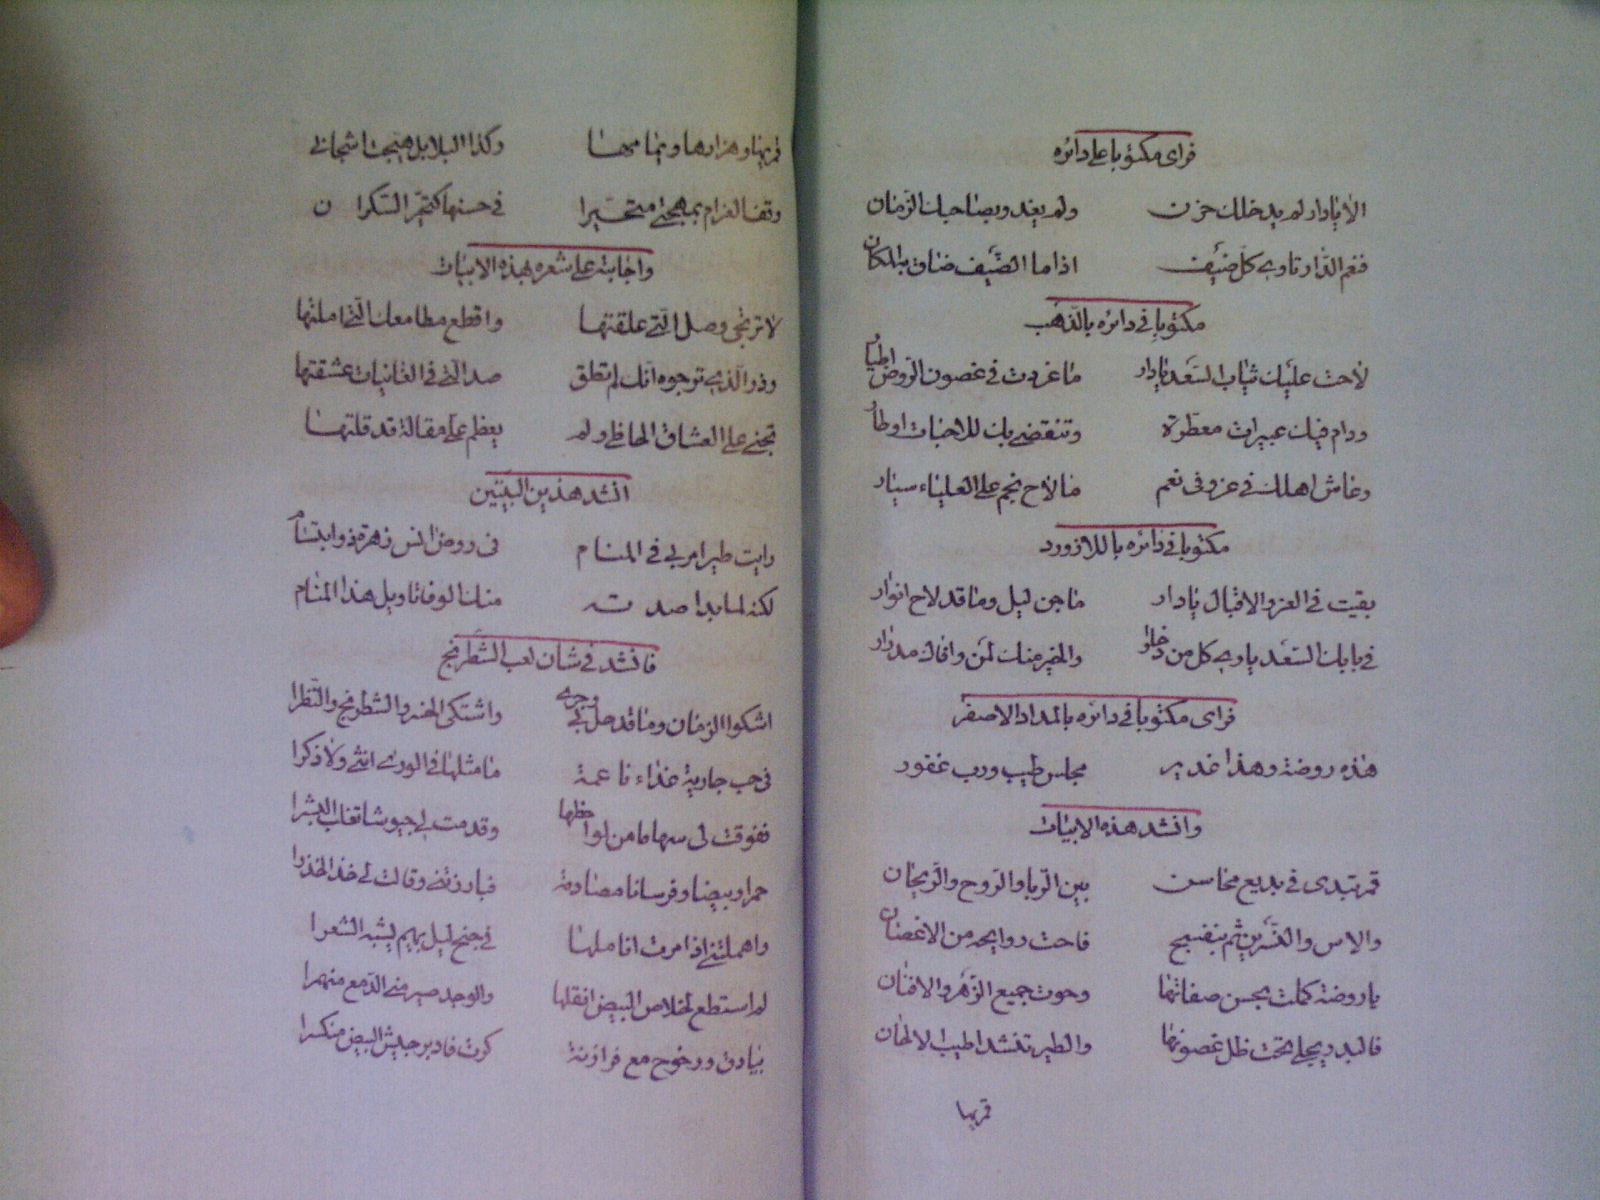 فراى مكتوبا على دائره
الا يا دار لم يدخلك حزن ولم يغدر بصاحبك الزمان
فنعم الدار تاوى كل ضيف اذا ما الضيف ضاق به المكان
مكتوبا فى دائره بالذهب
لاحت عليك ثياب السعد يا دار ما غردت فى غصون الروض اطيار
ودام فيك عبيرات معطرة وتنقضى بك للاحباب اوطار
وعاش اهلك فى عز وفى نعم ما لاح نجم على العلياء سيار
مكتوبا فى دائره باللازورد
بقيت فى العز والاقبال يا دار ما جن ليل وما قد لاح انوار
فى بابك السعد ياوى كل من دخلوا والخير منك لمن وافاك مدرار
فراى مكتوبا فى دائره بالمداد الاصفر
هذه روضة وهذا غدير مجلس طيب ورب غفور
وانشد هذه الابيات
قمر تبدى فى بديع محاسن بين الربا والروح والريحان
والاس والنسرين ثم بنفسج فاحت روايحه من الاغصان
يا روضة كملت بحسن صفاتها وحوت جميع الزهر والافنان
فالبدر يجلى تحت ظل غصونها والطير تنشد اطيب الالحان
قمريها
قمريها وهزارها ويمامها وكذا البلابل هيجت اشجانى
وقف الغرام بمهجتى متحيرا فى حسنها كتحير السكرا ن
واجابته على شعره بهذه الابيات
لا ترتجى وصل التى علقتها واقطع مطامعك التى املتها
وذر الذى ترجوه انك لم تطق صد التى فى الغانيات عشقتها
تجنى على العشاق الحاظى ولم يعظم على مقالة قد قلتها
انشد هذين البيتين
رايت طيرا مر بى فى المنام فى روض انس زهرة ذو ابتسام
لكنه لما بدا صد ته منك الوفا تاويل هذا المنام
فانشد فى شان لعب الشطرنج
اشكوا الزمان وما قد حل بى وجرى واشتكى الخسر والشطرنج والنظرا
فى حب جارية غذاء ناعمة ما مثلها فى الورى انثى ولا ذكرا
ففوقت لى سهاما من لواحظها وقدمت لى جيوشا تغلب البشرا
حمرا وبيضا وفرسانا مصادمة فبارزتنى وقالت لى خذ الحذرا
واهملتنى اذا مرت اناملها فى جنح ليل بهيم يشبه الشعرا
لم استطع لخلاص البيض انقلها والوجد صير منى الدمع منهمرا
بيادق ورخوخ مع فرازنة كرت فادبر جيش البيض منكسرا